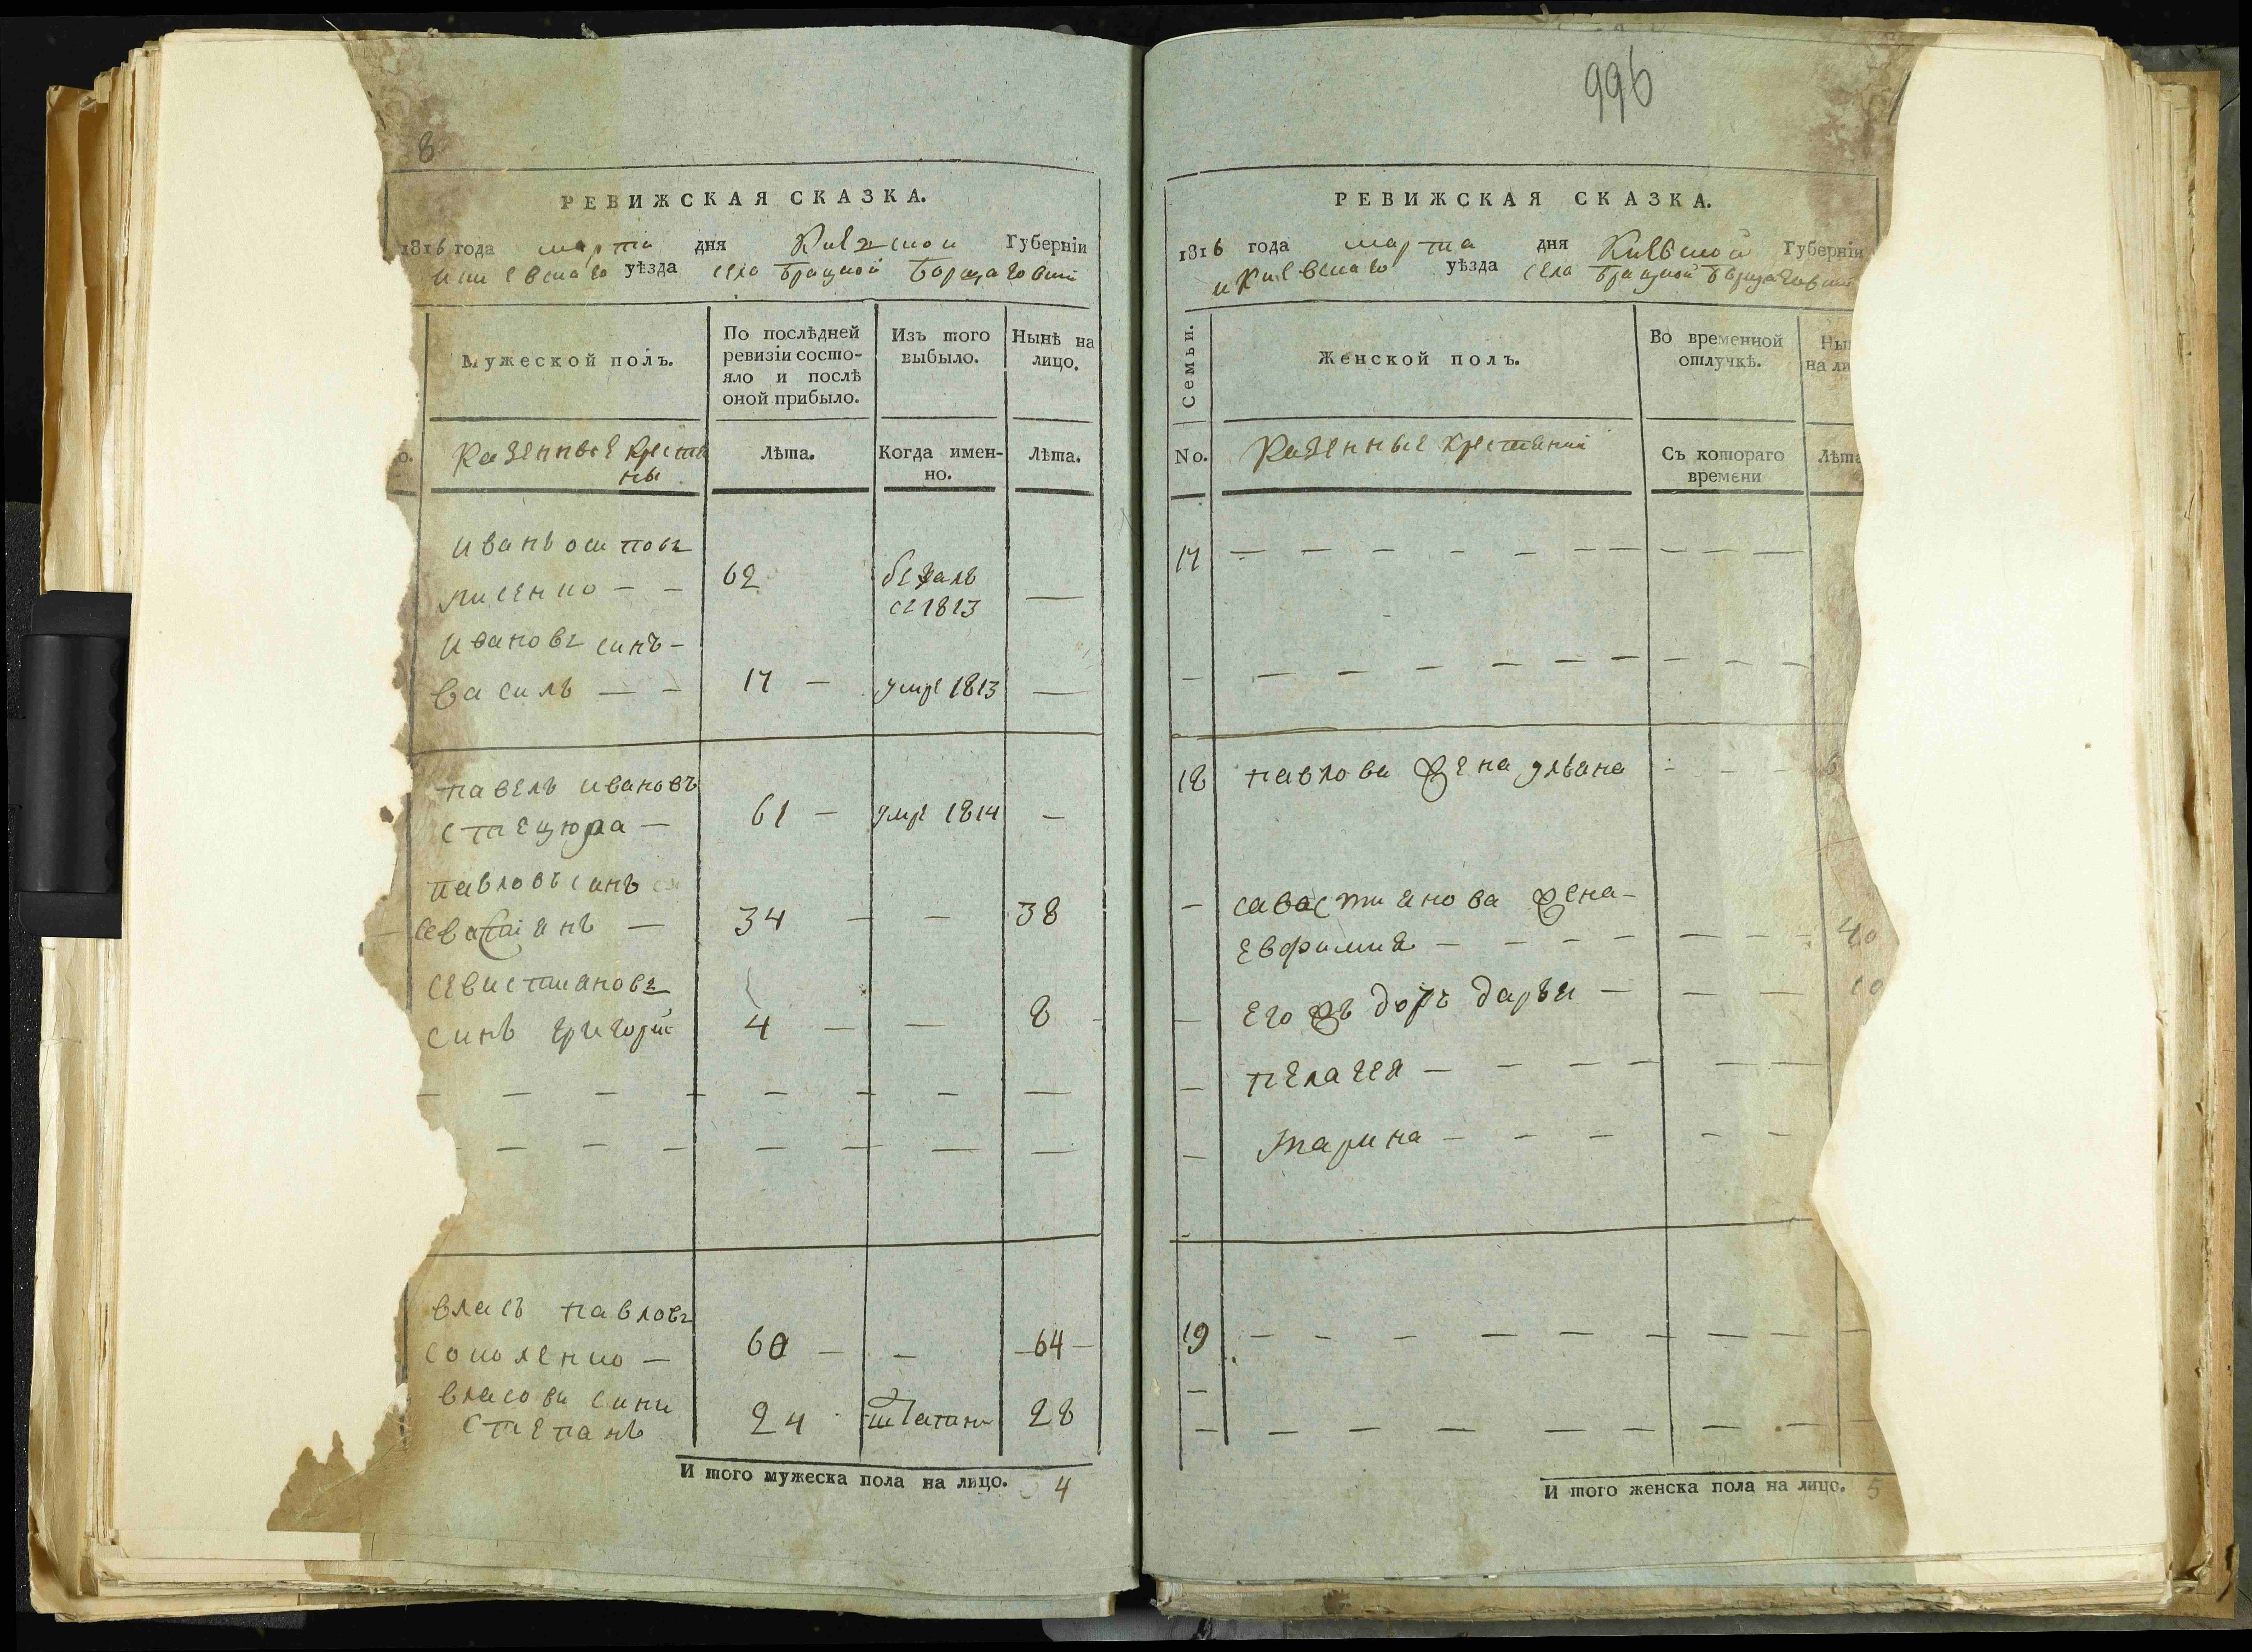 8
РЕВИЖСКАЯ СКАЗКА.
1816 года марта дня Киевской Губерніи
и киевскаго уѣзда села Братской Борщаговки
Мужеской полъ.
По послѣдней ревизіи состояло и послѣ оной прибыло.
Изъ того выбыло.
Нынѣ на лицо.
Казенные крестяны
Лѣта.
Когда именно.
Лѣта.
иванъ осиповъ
лисенко — — 62 бежалъ —
съ 1813
ивановъ синъ —
василь — — 17 — умре 1813 —
павелъ ивановъ
стецюра — 61 — умре 1814 —
павловъ синъ
севастіянъ — 34 — — 38
севистияновъ
синъ григорий 4 — — 8
— — — — — — — —
— — — — — — —
власъ павловъ
соколенко — 60 — — 64 —
власови сини
степанъ 24 28
И того мужеска пола на лицо. 4
996
РЕВИЖСКАЯ СКАЗКА.
1816 года марта дня Киевской Губерніи
и Киевскаго уѣзда села Братской Борщаговки
Семьи.
Женской полъ.
Во временной отлучкѣ.
Ны
на ли
No.
Казенные крестяни
Съ котораго времени
Лѣта
17 — — — — — — — — — —
— — — — — — — — — —
18 павлова жена уляна - - -
— савостиянова жена —
евфимия — — — — — — — 40
— его жъ дочь дарья — — — 10
— пелагея — — — — — —
— марина — — — — —
19 — — — — — — — — — —
—
— — — — — — — — — —
И того женска пола на лицо. 5